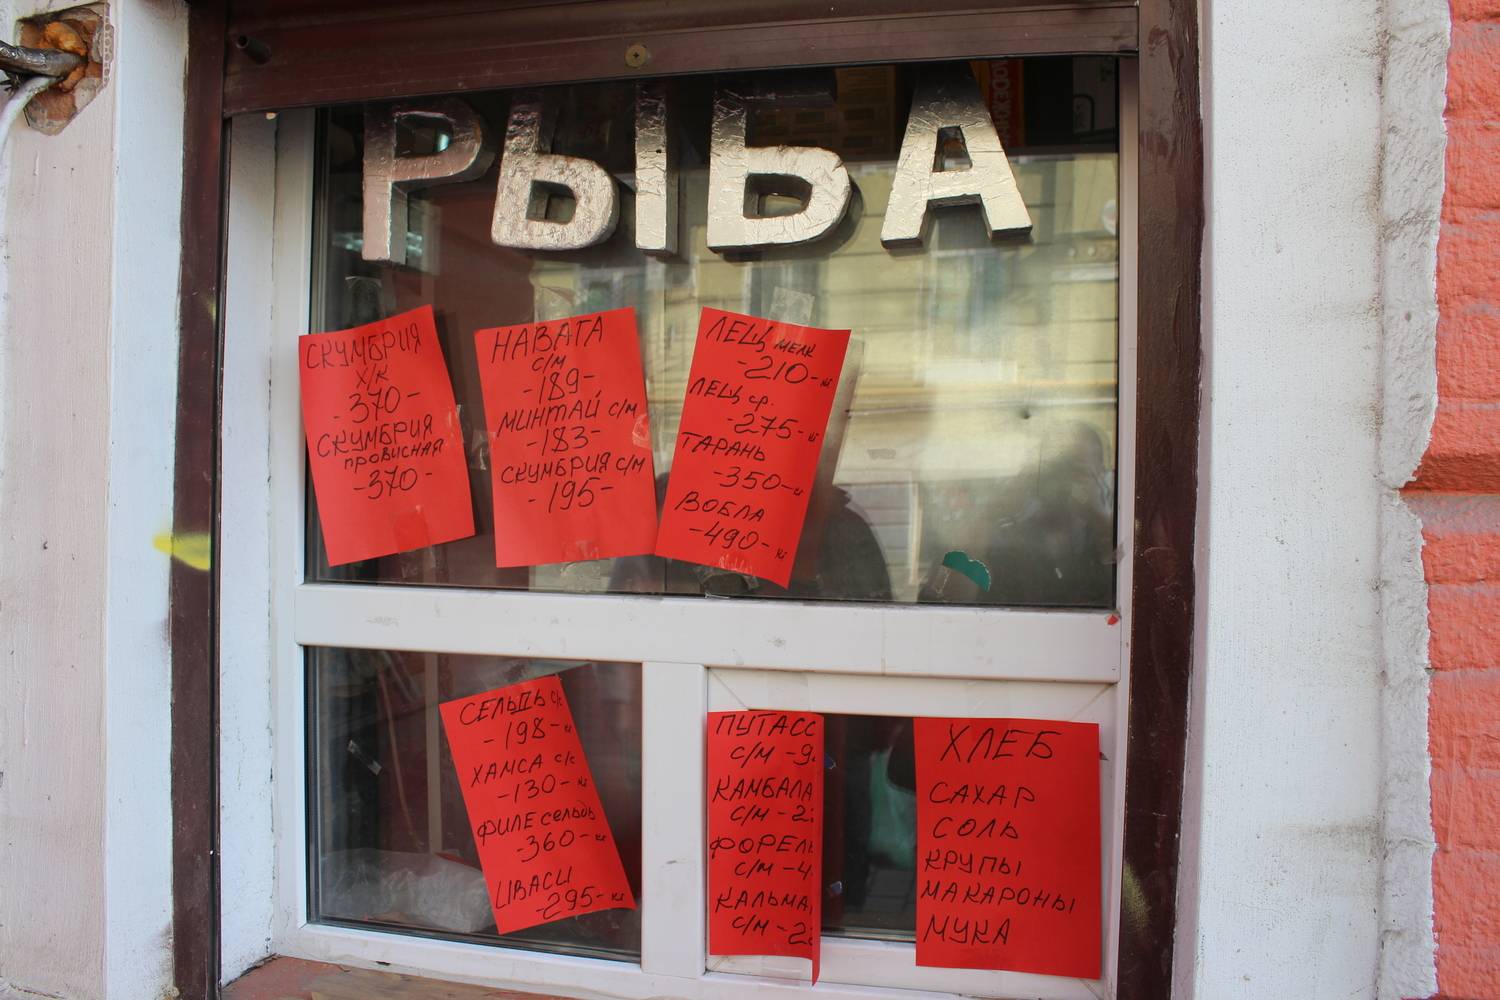 РЫБА
СКУМБРИЯ
Х/К
-370-
СКУМБРИЯ
ПРОВИСНАЯ
-370-
НАВАГА
С/М
-189-
МИНТАЙ С/М
-183-
СКУМБРИЯ С/М
-195-
ЛЕЩ МЕЛК
-210- кг
ЛЕЩ ср.
-275- кг
ТАРАНЬ
-350- кг
ВОБЛА
-490- кг
СЕЛЬДЬ С/С
-198- кг
ХАМСА С/С
-130- кг
ФИЛЕ сельдь
-360- кг
ИВАСИ
-295- кг
ПУТАСС
С/М -9
КАМБАЛА
С/М -2
ФОРЕЛЬ
С/М -4
КАЛЬМА
С/М -2
ХЛЕБ
САХАР
СОЛЬ
КРУПЫ
МАКАРОНЫ
МУКА